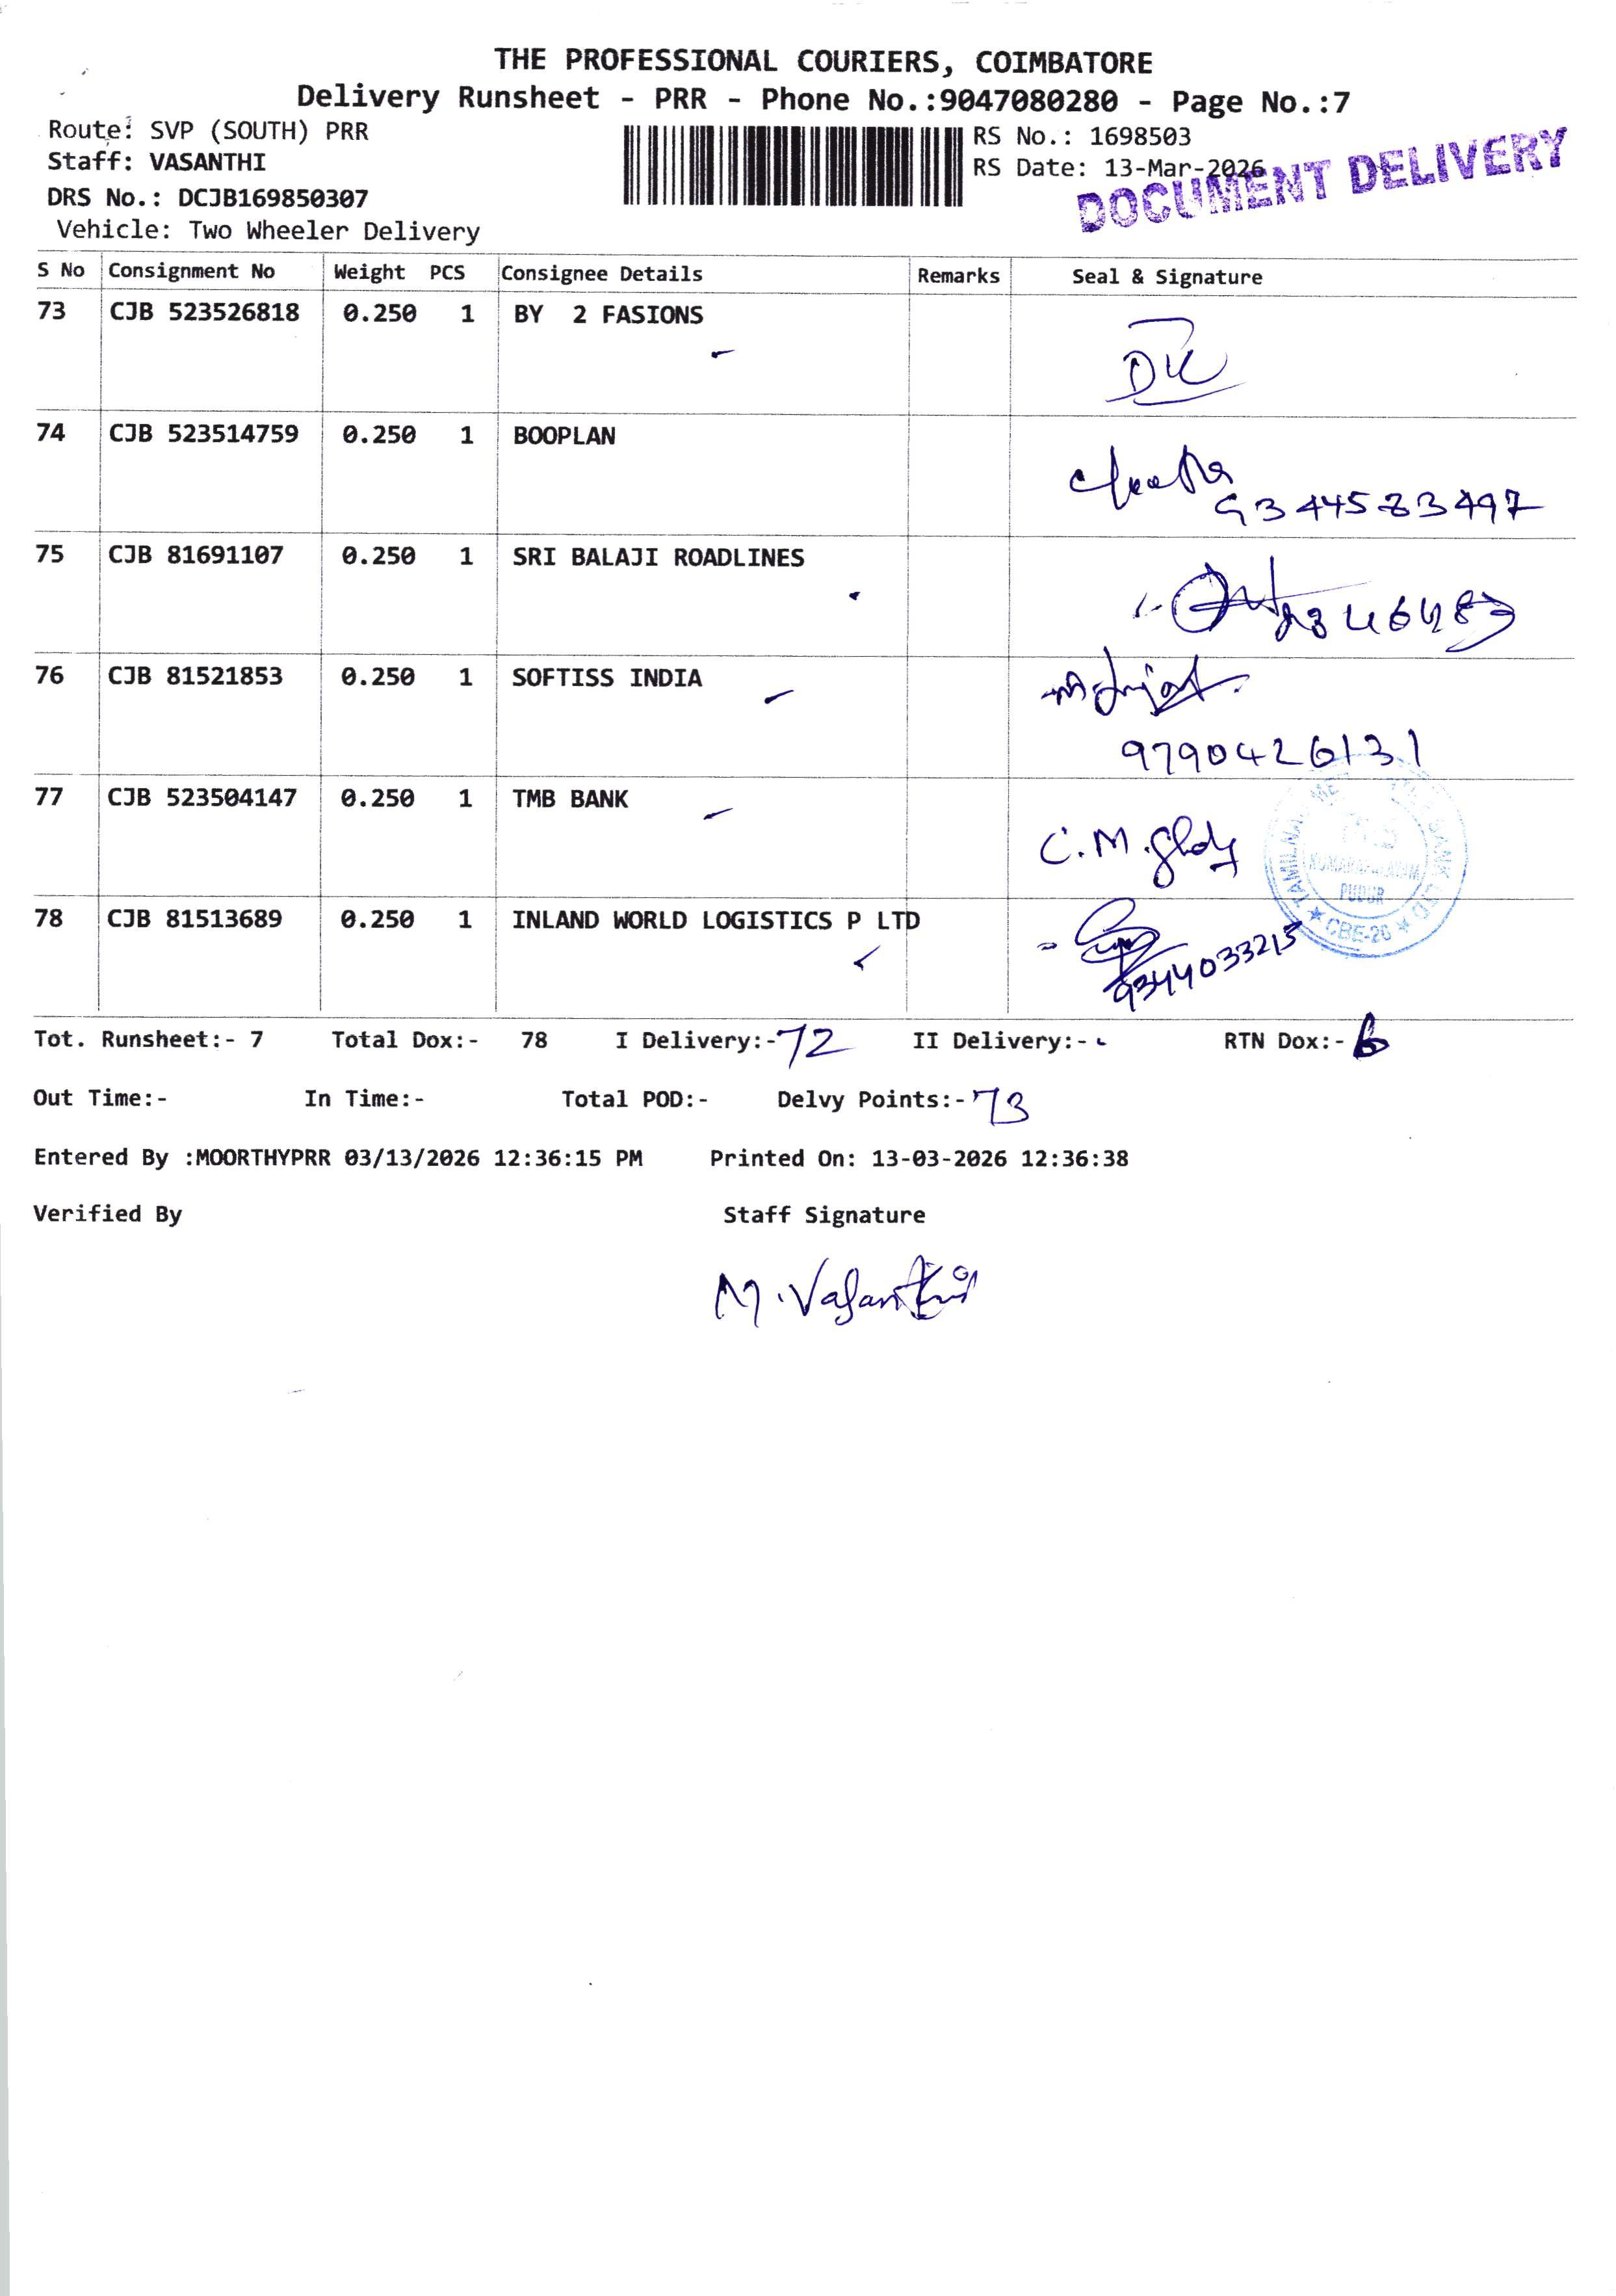 THE PROFESSIONAL COURIERS, COIMBATORE
Delivery Runsheet - PRR - Phone No.:9047080280 - Page No.:7
Route: SVP (SOUTH) PRR
RS No.: 1698503
Staff: VASANTHI
RS Date: 13-Mar-2026
DOCUMENT DELIVERY
DRS No.: DCJB169850307
Vehicle: Two Wheeler Delivery
S No Consignment No Weight PCS Consignee Details Remarks Seal & Signature
73 CJB 523526818 0.250 1 BY 2 FASIONS
74 CJB 523514759 0.250 1 BOOPLAN
9344583497
75 CJB 81691107 0.250 1 SRI BALAJI ROADLINES
76 CJB 81521853 0.250 1 SOFTISS INDIA
9790426131
77 CJB 523504147 0.250 1 TMB BANK
C.M.
PUDUR
CBE-20
78 CJB 81513689 0.250 1 INLAND WORLD LOGISTICS P LTD
9344033215
Tot. Runsheet:- 7 Total Dox:- 78 I Delivery:- 72 II Delivery:- RTN Dox:- 6
Out Time:- In Time:- Total POD:- Delvy Points:- 73
Entered By :MOORTHYPRR 03/13/2026 12:36:15 PM Printed On: 13-03-2026 12:36:38
Verified By Staff Signature
M. Vasanthi